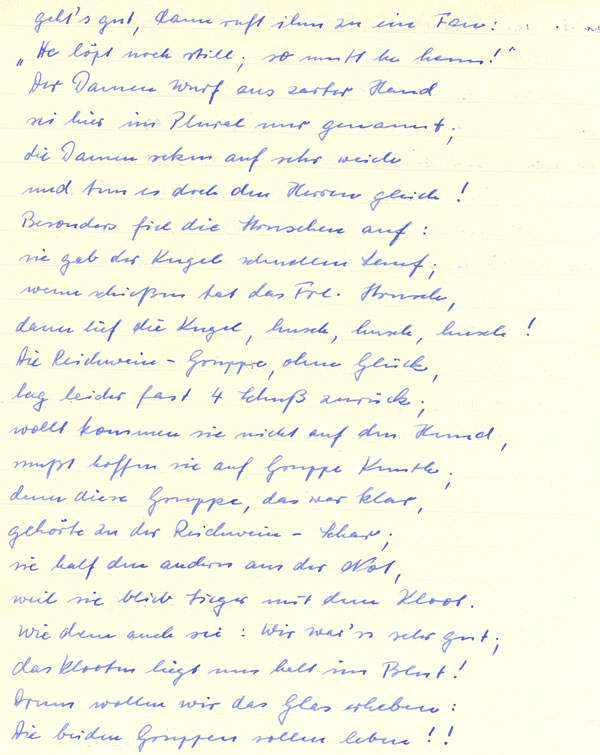 geht's gut, dann ruft ihm zu ein Fan:
„He löpt noch still; so mutt he henn!"
Der Damen Wurf aus zarter Hand
sei hier im Plural nur genannt;
die Damen sehen auf sehr weich
und tun es doch den Herren gleich!
Besonders fiel die Hrruschen auf:
sie gab der Kugel schnellen Lauf;
wenn schießen tat das Frl. Hrrusch,
dann lief die Kugel, husch, husch, husch!
Die Reichwein-Gruppe, ohne Glück,
lag leider fast 4 Schuß zurück;
wollt kommen sie nicht auf den Hund,
mußt hoffen sie auf Gruppe
denn diese Gruppe, das war klar,
gehörte zu der Reichwein-Schar;
sie half den andern aus der Not,
weil sie blieb Sieger mit dem Kloot.
Wie dem auch sei: Wir war's sehr gut;
das Klooten liegt uns halt im Blut!
Drum wollen wir das Glas erheben:
Die beiden Gruppen sollen leben!!